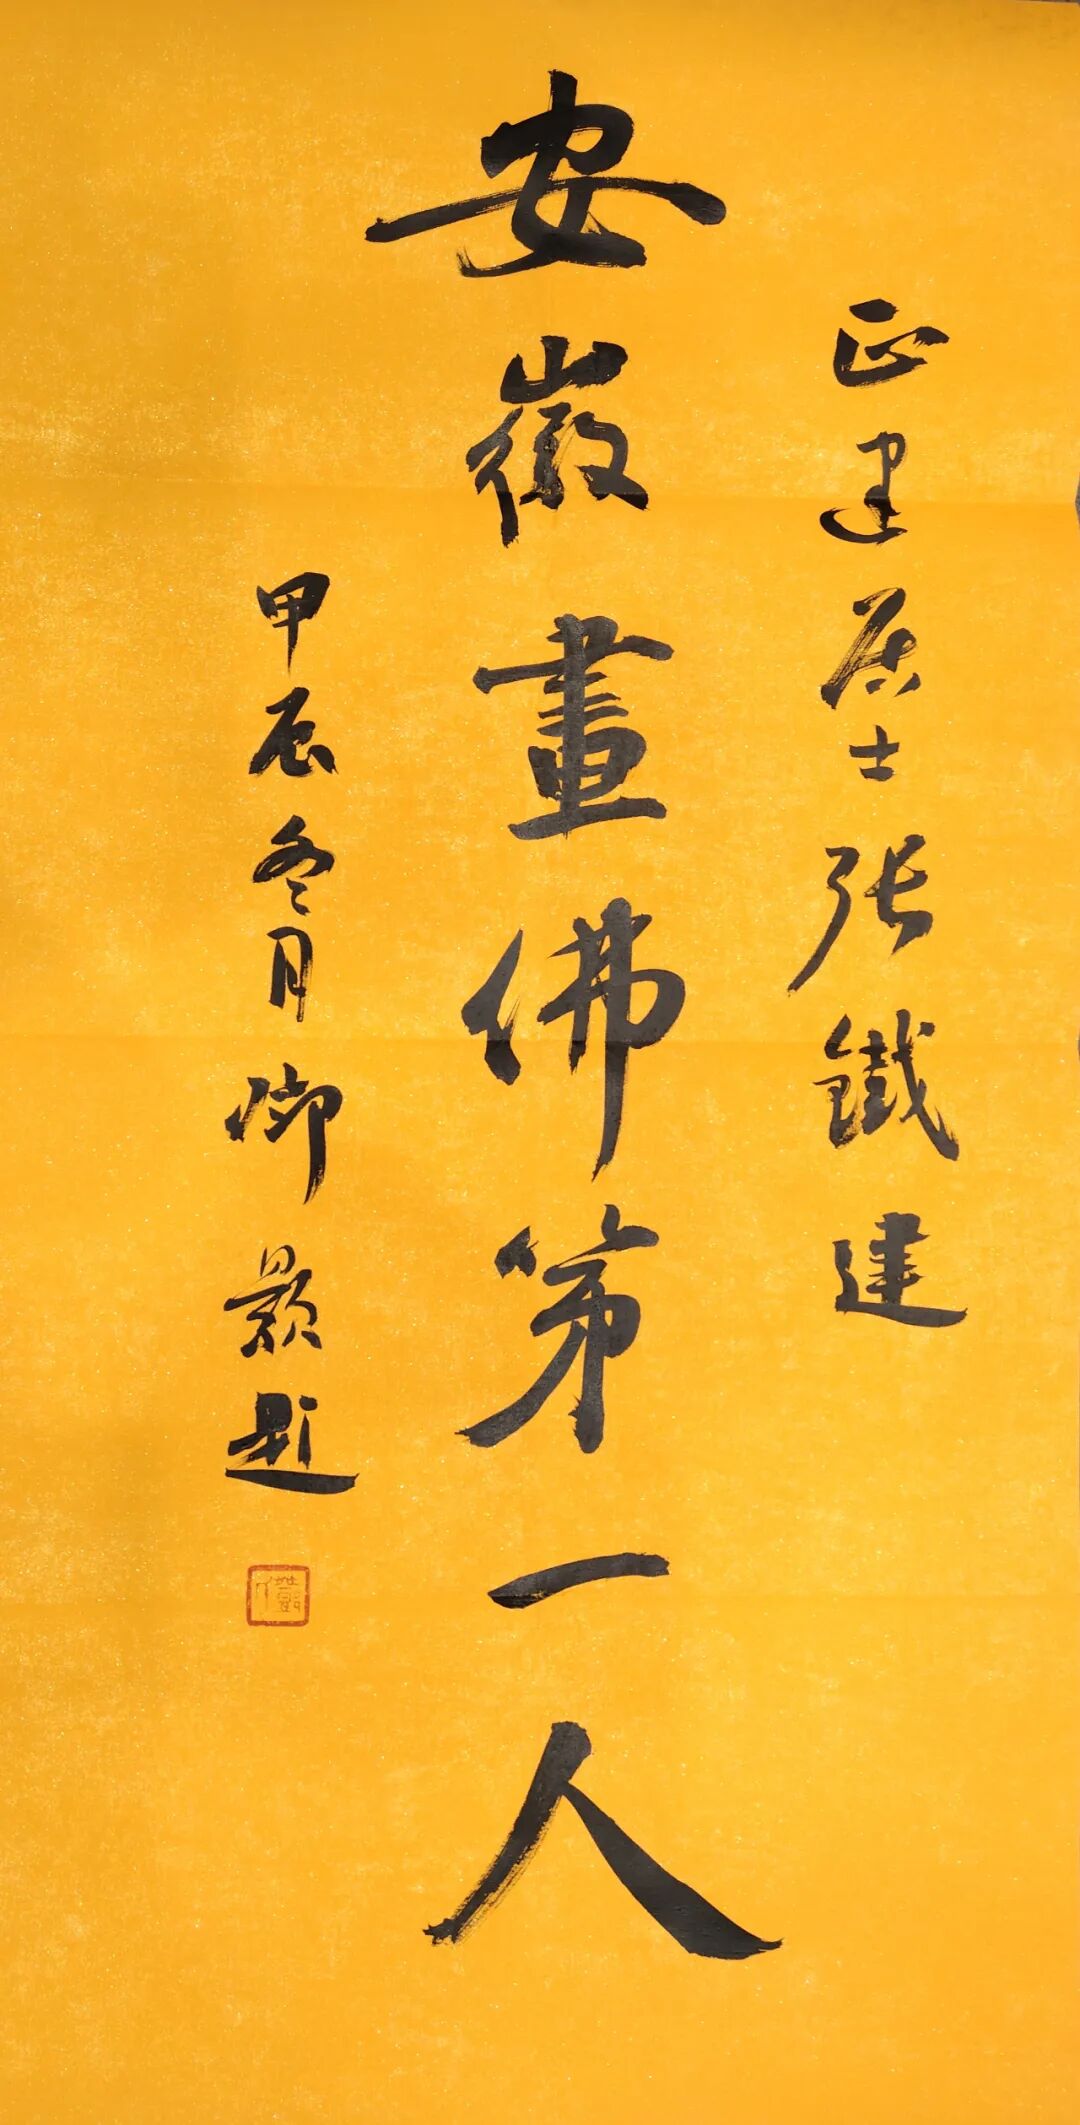 正建居士张鐵建
安徽畫佛第一人
甲辰冬月題